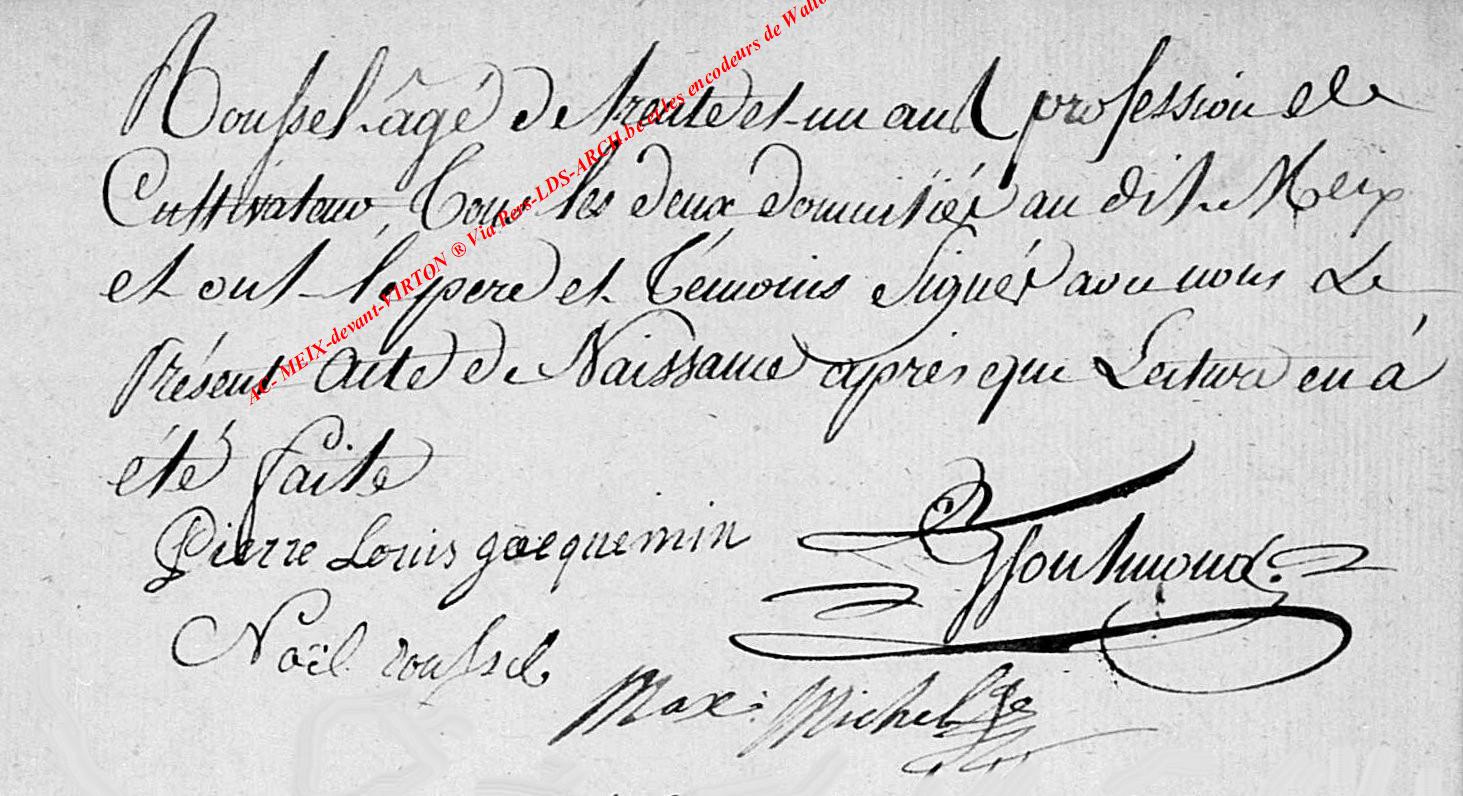 Roussel âgé de trente et un ans profession de
Cultivateur, Tous les deux domiciliés au dit Meix
et ont le pere et Témoins Signés avec nous Le
Présent Acte de Naissance après que Lecture en à
été faite
Pierre Louis gocquemin
Noël roussel
Max: Michel
AC- MEIX-devant-VIRTON ® Via Rers-LDS-ARCH.be et les encodeurs de Wallo